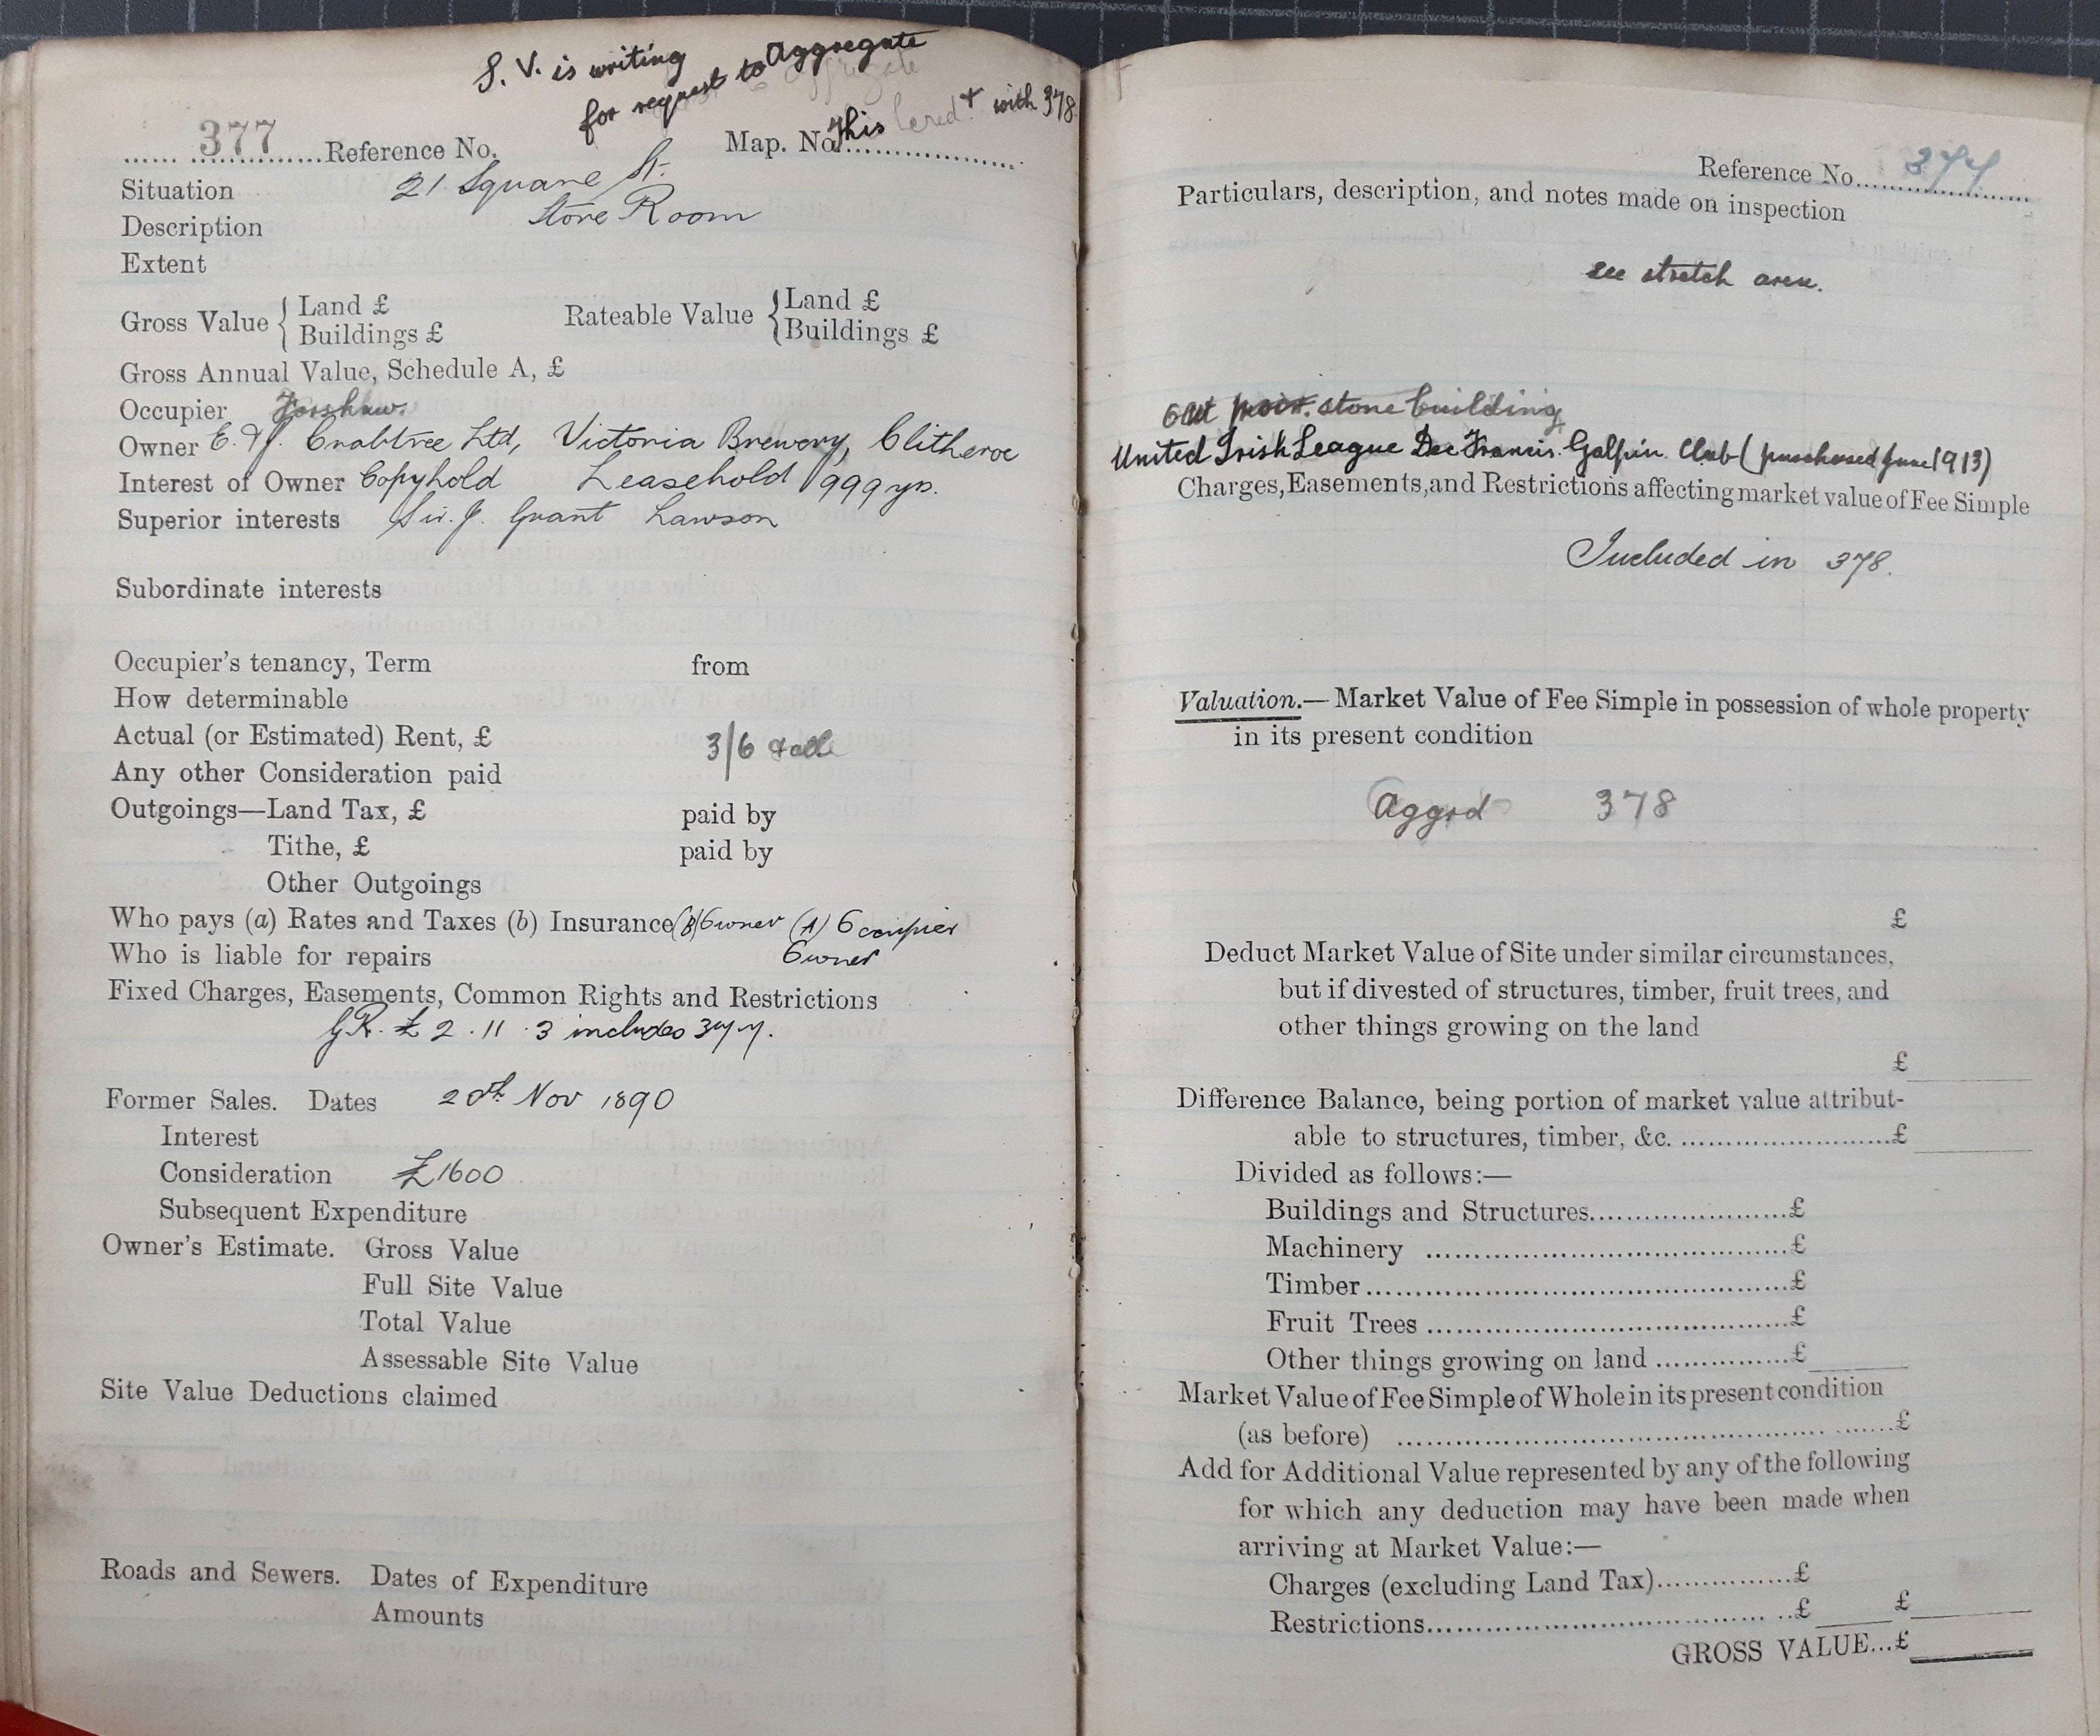 S. V. is writing
for request to Aggregate
this hered.t with 378.
377 Reference No.
Map. No.
Situation 21 Square St.
Description Store Room
Extent
Gross Value { Land £
Buildings £
Rateable Value { Land £
Buildings £
Gross Annual Value, Schedule A, £
Occupier Forshaw.
Owner E. & J. Crabtree Ltd, Victoria Brewery, Clitheroe
Interest of Owner Copyhold Leasehold 999 yrs.
Superior interests Sir. J. Grant Lawson
Subordinate interests
Occupier's tenancy, Term from
How determinable
Actual (or Estimated) Rent, £ 3/6
Any other Consideration paid
Outgoings—Land Tax, £ paid by
Tithe, £ paid by
Other Outgoings
Who pays (a) Rates and Taxes (b) Insurance (B) Owner (A) Occupier
Who is liable for repairs Owner
Fixed Charges, Easements, Common Rights and Restrictions
G.R. £2.11.3 includes 377.
Former Sales. Dates 20th Nov 1890
Interest
Consideration £1600
Subsequent Expenditure
Owner's Estimate. Gross Value
Full Site Value
Total Value
Assessable Site Value
Site Value Deductions claimed
Roads and Sewers. Dates of Expenditure
Amounts
Reference No. 377
Particulars, description, and notes made on inspection
see area.
stone building
United Irish League Francis Club (purchased June 1913)
Charges, Easements, and Restrictions affecting market value of Fee Simple
Included in 378.
Valuation.—Market Value of Fee Simple in possession of whole property
in its present condition
Aggrd 378
£
Deduct Market Value of Site under similar circumstances,
but if divested of structures, timber, fruit trees, and
other things growing on the land
£
Difference Balance, being portion of market value attribut-
able to structures, timber, &c. ........................£
Divided as follows:—
Buildings and Structures........................£
Machinery ........................£
Timber........................£
Fruit Trees ........................£
Other things growing on land ...............£
Market Value of Fee Simple of Whole in its present condition
(as before) ........................£
Add for Additional Value represented by any of the following
for which any deduction may have been made when
arriving at Market Value:—
Charges (excluding Land Tax)...............£
Restrictions........................£ £
GROSS VALUE...£